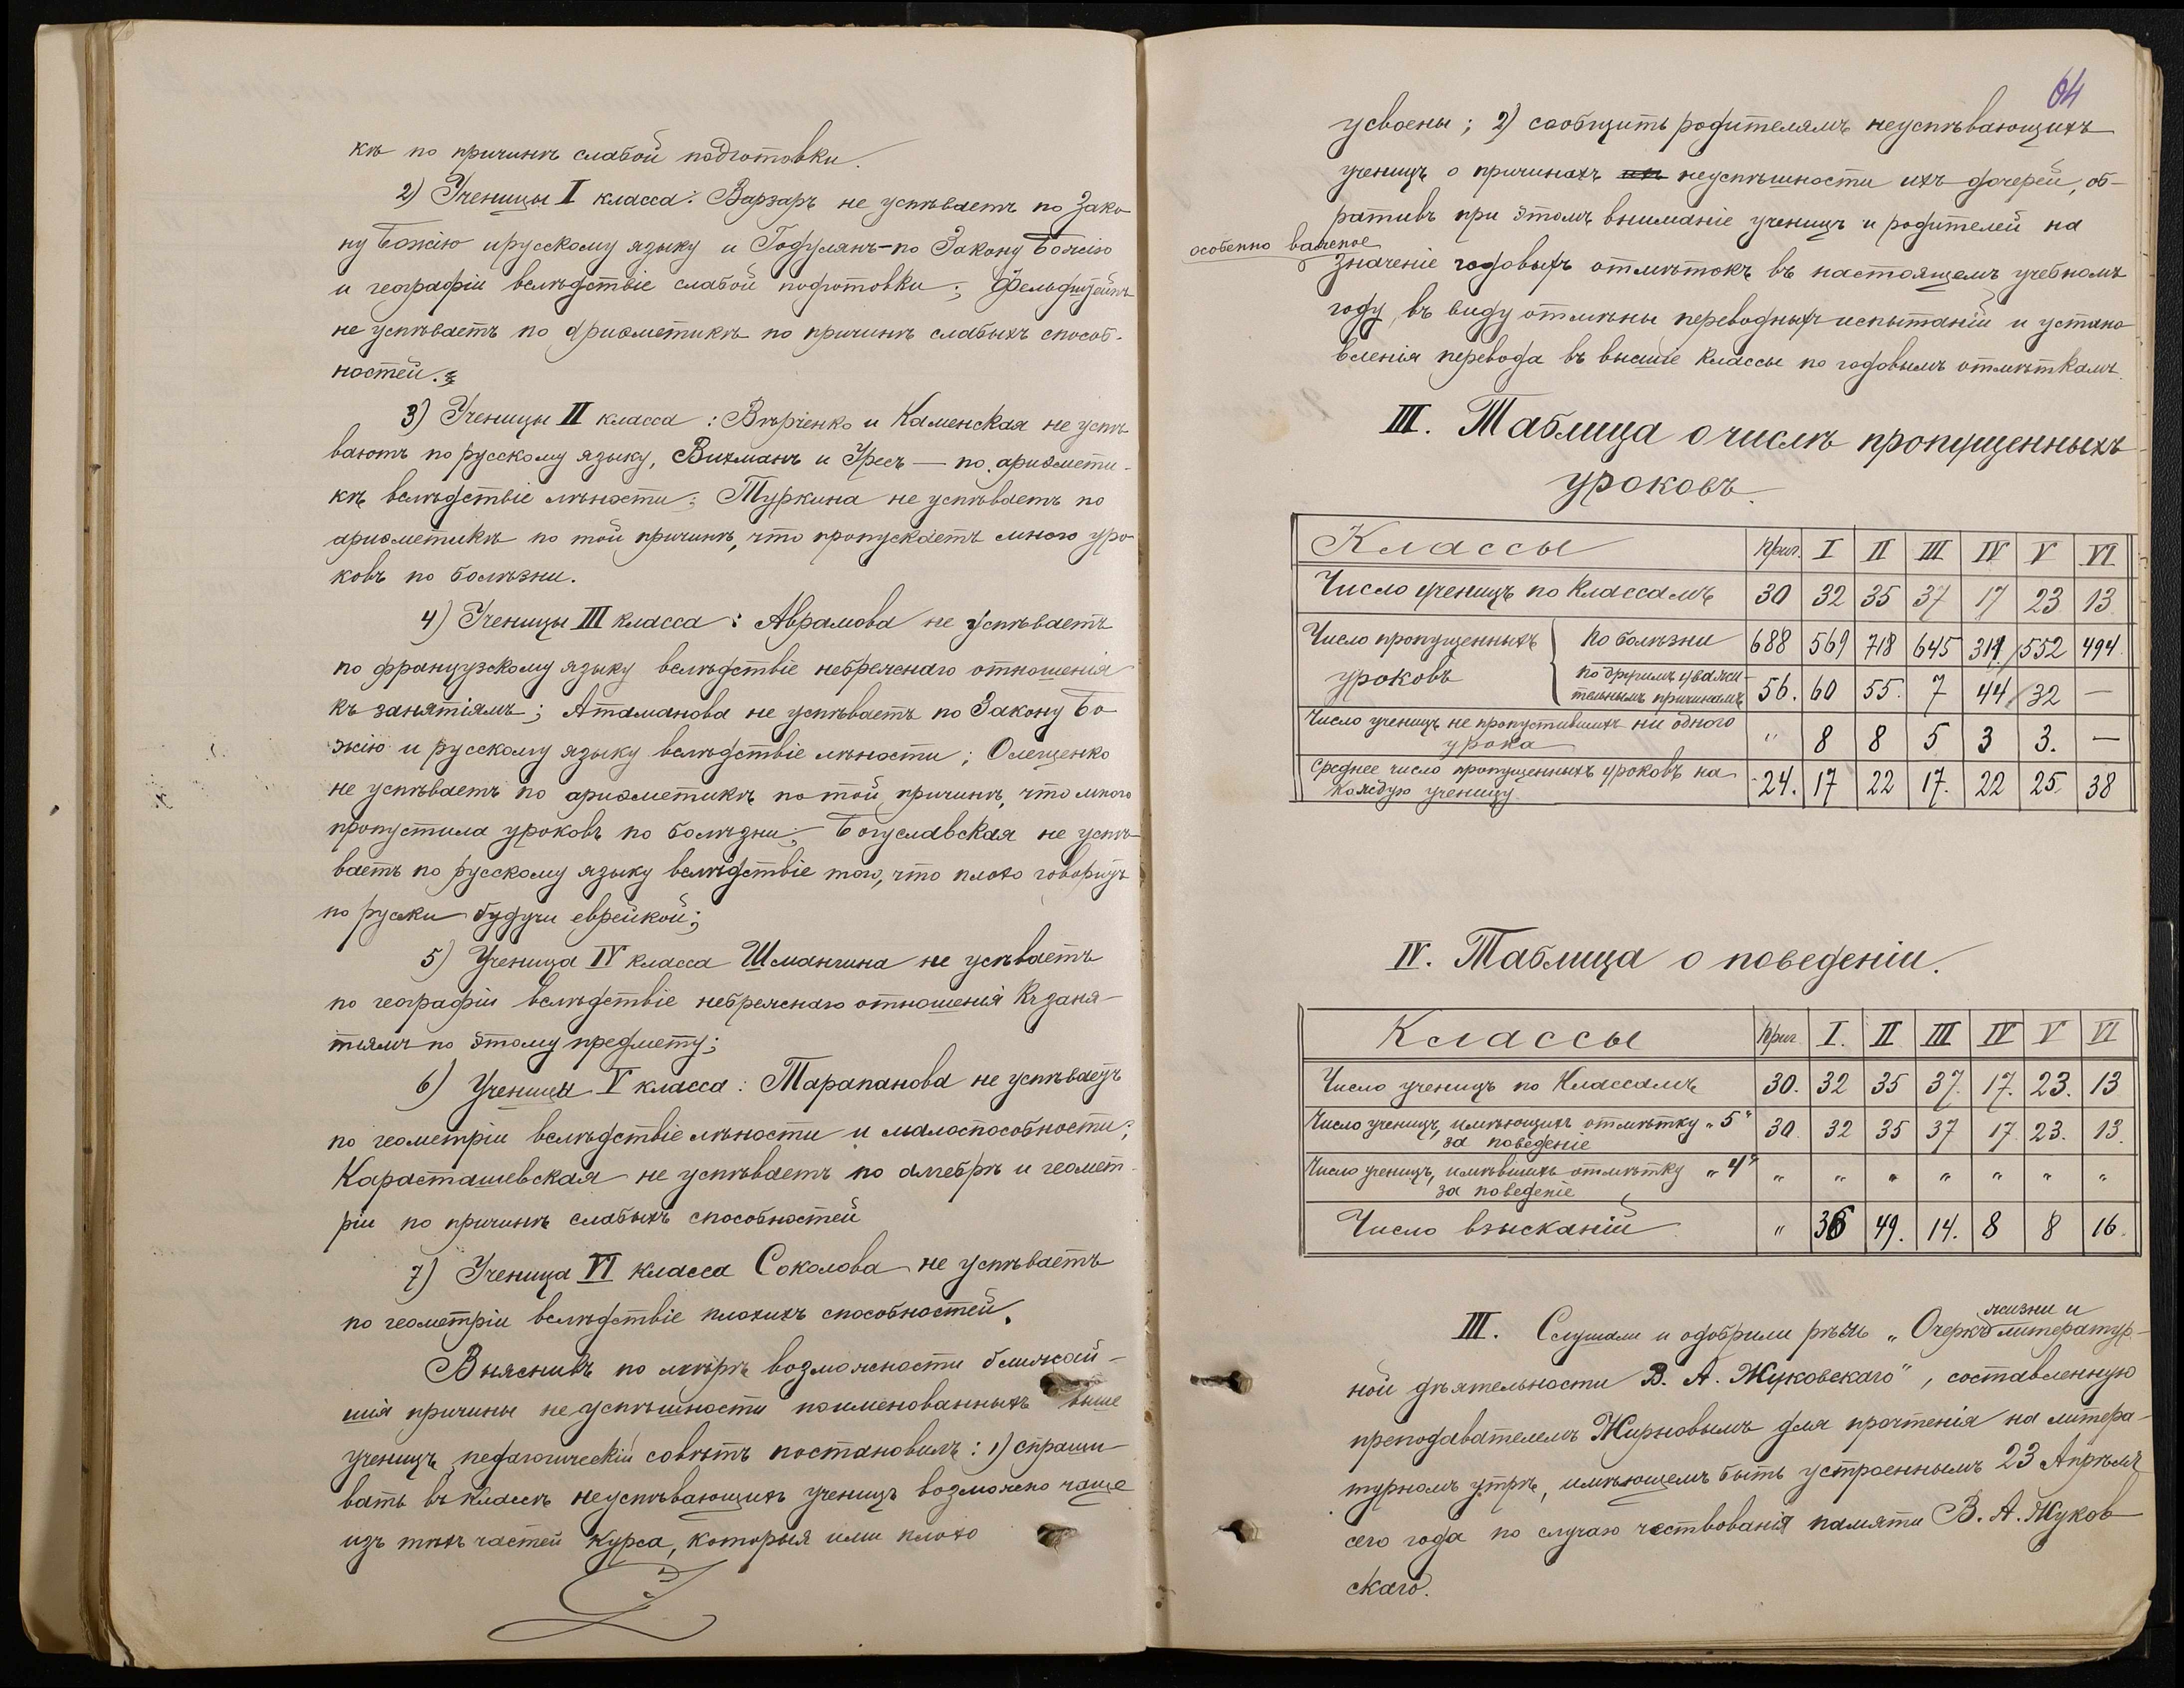 кѣ по причинѣ слабой подготовки.
2) Ученицы I класса: Варзаръ не успѣваетъ по Зако
ну Божію и русскому языку и Годулянъ – по Закону Божію
и географіи вслѣдствіе слабой подготовки; Фельдштейнъ
не успѣваетъ по ариѳметикѣ по причинѣ слабыхъ способ-
ностей.
3) Ученицы II класса: Вѣрченко и Каменская не успѣ
ваютъ по русскому языку, Вихманъ и Уресъ — по ариѳмети-
кѣ вслѣдствіе лѣности; Туркина не успѣваетъ по
ариѳметикѣ по той причинѣ, что пропускаетъ много уро-
ковъ по болѣзни.
4) Ученицы III класса: Аврамова не успѣваетъ
по французскому языку вслѣдствіе небрежнаго отношенія
къ занятіямъ; Атаманова не успѣваетъ по Закону Бо
жію и русскому языку вслѣдствіе лѣности; Олещенко
не успѣваетъ по ариѳметикѣ по той причинѣ, что много
пропустила уроковъ по болѣзни; Богуславская не успѣ-
ваетъ по русскому языку вслѣдствіе того, что плохо говоритъ
по руски будучи еврейкой;
5) Ученица IV класса Шмангина не успѣваетъ
по географіи вслѣдствіе небрежнаго отношенія къ заня-
тіямъ по этому предмету;
6) Ученицы V класса: Тарапанова не успѣваетъ
по геометріи вслѣдствіе лѣности и малоспособности;
Карасташевская не успѣваетъ по алгебрѣ и геомет-
ріи по причинѣ слабыхъ способностей
7) Ученица VI класса Соколова не успѣваетъ
по геометріи вслѣдствіе плохихъ способностей.
Выяснивъ по мѣрѣ возможности ближай-
шія причины неуспѣшности поименованныхъ выше
ученицъ, педагогическій совѣтъ постановилъ: 1) спраши-
вать въ классѣ неуспѣвающихъ ученицъ возможно чаще
изъ тѣхъ частей курса, которыя ими плохо
64
усвоены; 2) сообщить родителямъ неуспѣвающихъ
ученицъ о причинахъ неуспѣшности ихъ дочерей, об-
ративъ при этомъ вниманіе ученицъ и родителей на
особенно важное
значеніе годовыхъ отмѣтокъ въ настоящемъ учебномъ
году, въ виду отмѣны переводныхъ испытаній и устано
вленія перевода въ высшіе классы по годовымъ отмѣткамъ.
III. Таблица о числѣ пропущенныхъ
уроковъ.
Классы Приг. I II III IV V VI
Число ученицъ по классамъ 30 32 35 37 17 23 13
Число пропущенныхъ уроковъ по болѣзни 688 569 718 645 319 552 494
по другимъ уважи-
тельнымъ причинамъ 56. 60 55. 7 44 32 —
Число ученицъ не пропустившихъ ни одного
урока " 8 8 5 3 3. —
Среднее число пропущенныхъ уроковъ на
каждую ученицу. 24. 17 22 17. 22 25. 38
IV. Таблица о поведеніи.
Классы Приг. I. II III IV V VI
Число ученицъ по Классамъ 30. 32 35 37. 17. 23. 13
Число ученицъ, имѣющихъ отмѣтку „5"
за поведеніе 30. 32 35 37 17. 23. 13.
Число ученицъ, имѣвшихъ отмѣтку „4"
за поведеніе " " " " " " "
Число взысканій " 36 49. 14. 8 8 16.
жизни и
III. Слушали и одобрили рѣчь „Очеркъ литератур-
ной дѣятельности В. А. Жуковскаго", составленную
преподавателемъ Жирновымъ для прочтенія на литера-
турномъ утрѣ, имѣющемъ быть устроеннымъ 23 Апрѣля
сего года по случаю чествованія памяти В. А. Жуков
скаго.